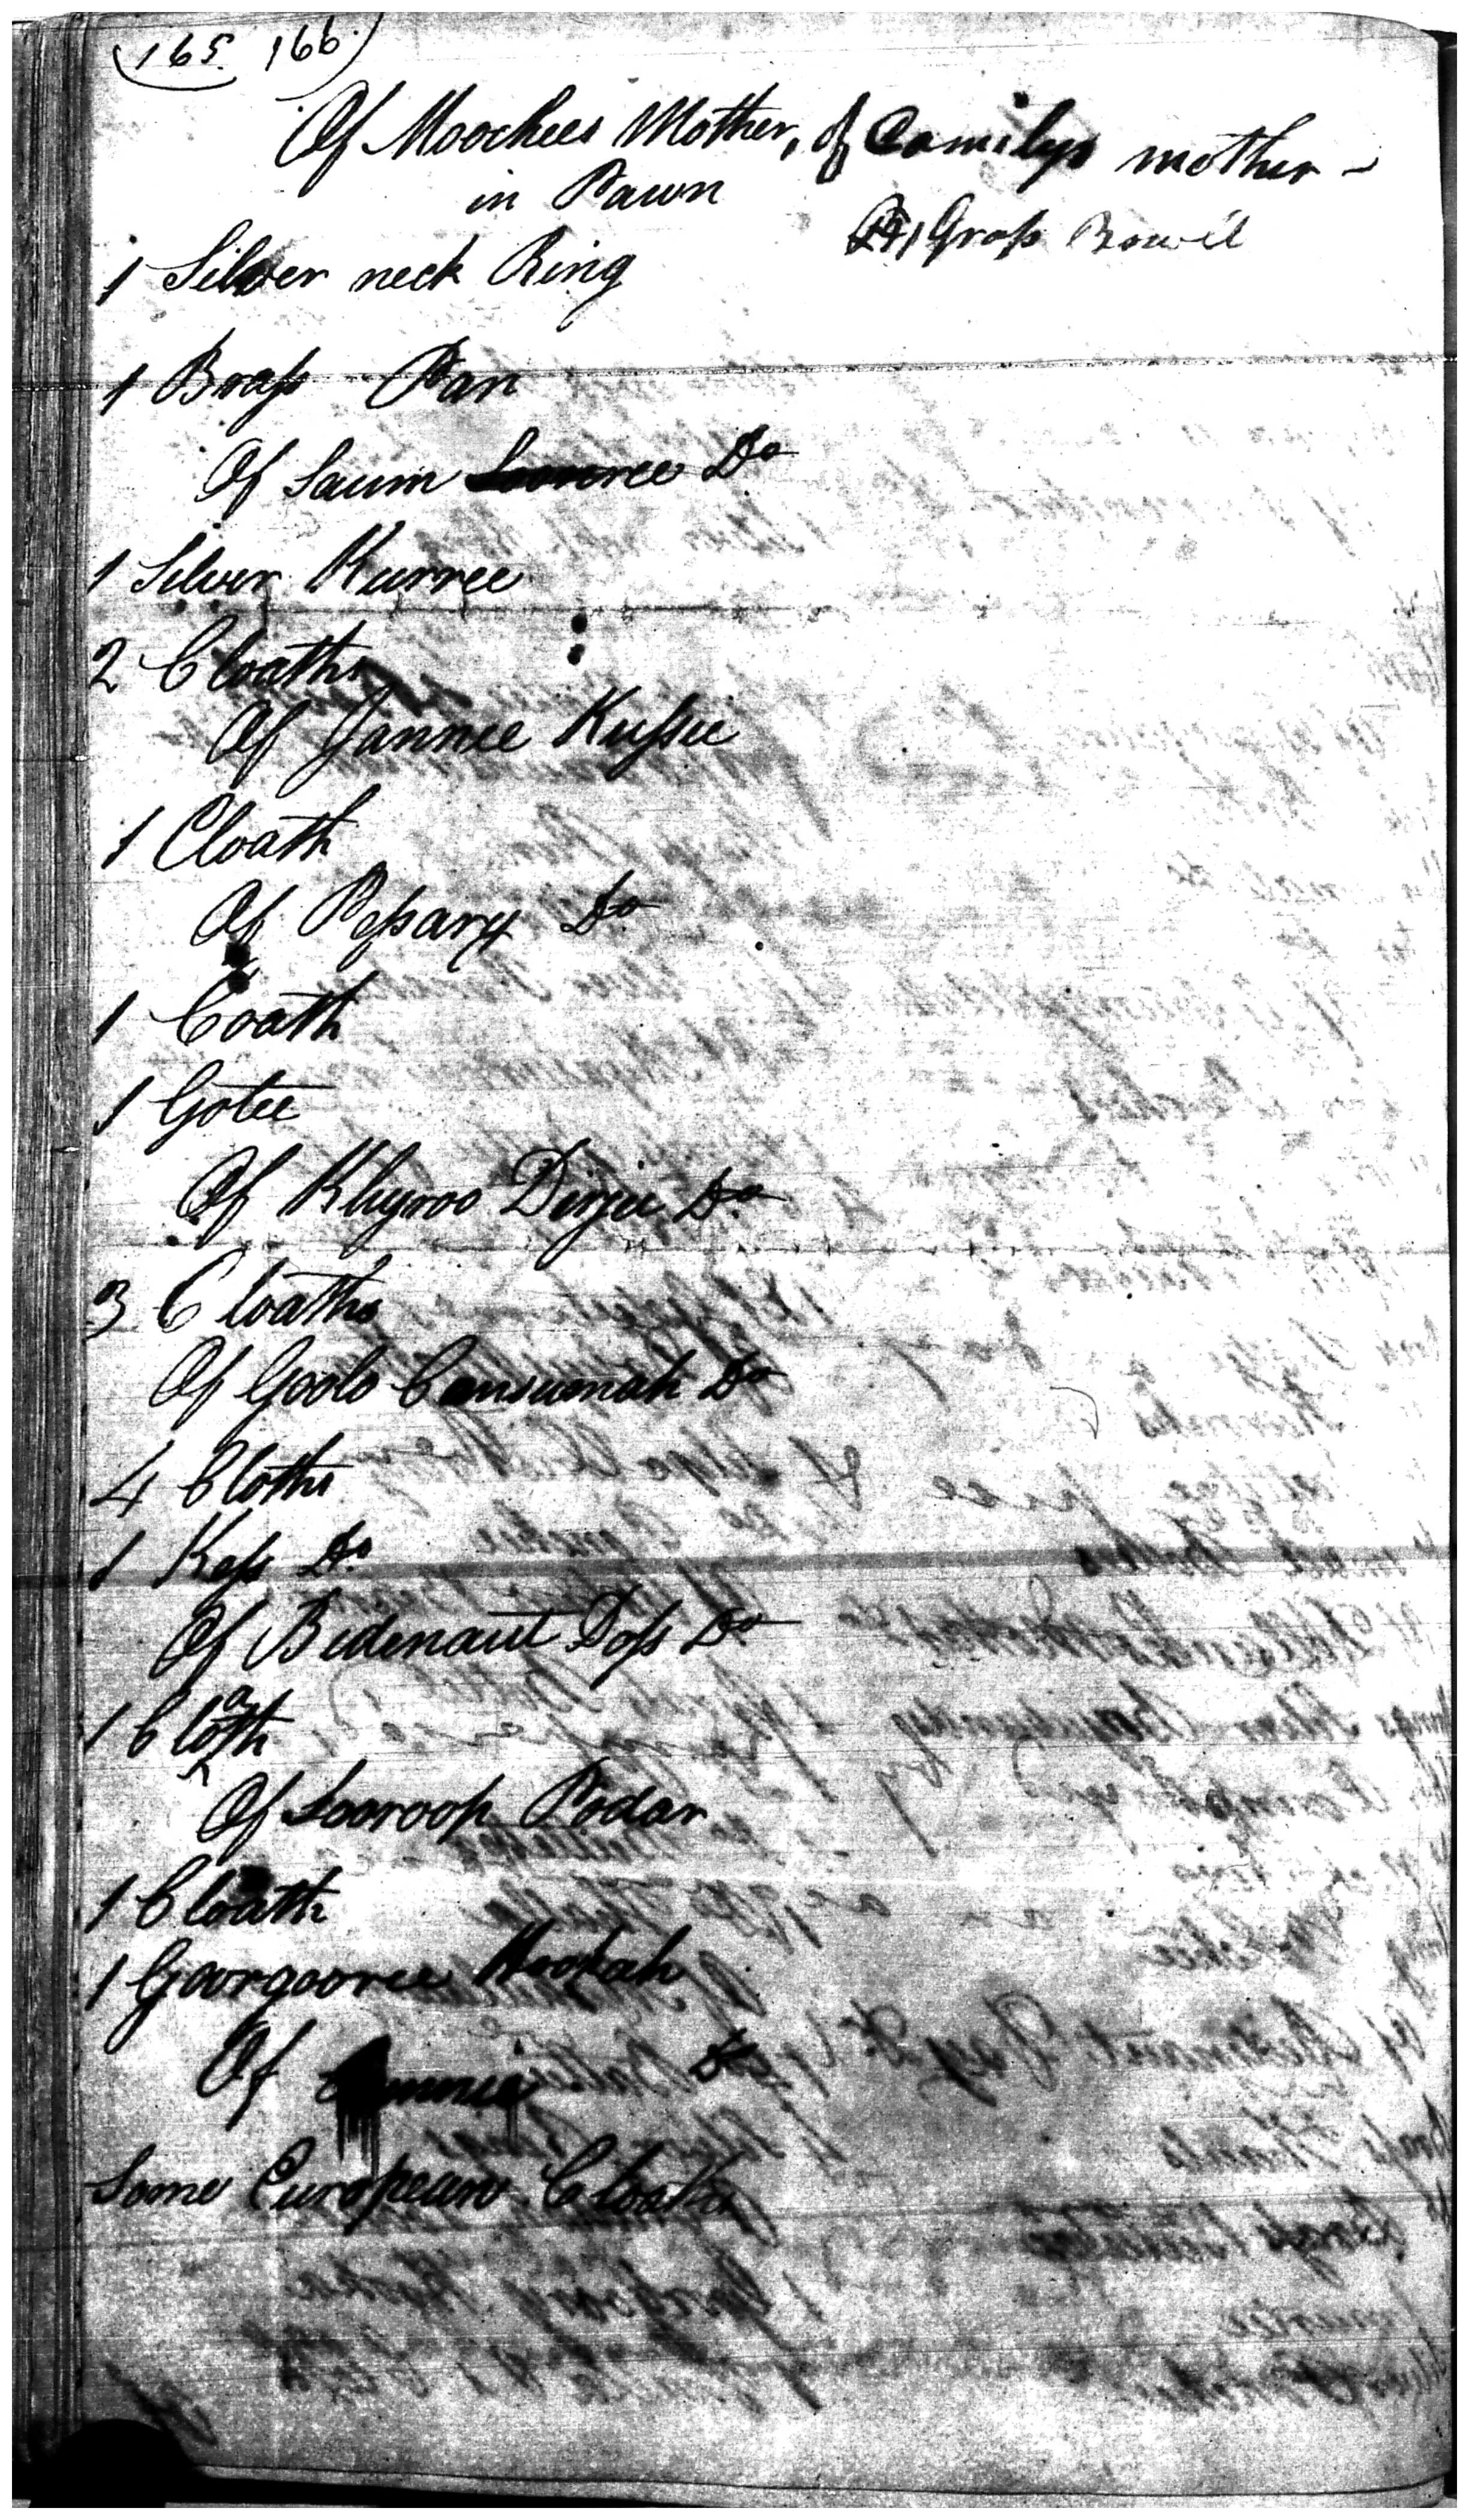 165. 166.
Of Moochees Mother, of Camilys mother -
in Pawn
1 Grass Bowel
1 Silver neck Ring
1 Brass Pan
Of Saum Do
1 Silver Kurree
2 Cloaths
Of Jannee Kussee
1 Cloath
Of Do
1 Coath
1 Gotee
Of Khyroo Dirjee Do
3 Cloaths
Of Goolo Consumah Do
4 Cloths
1 Kess Do
Of Bidenaut Doss Do
1 Cloath
Of Sooroop Podar
1 Cloath
1 Goorgooree Hookah
Of Do
Some European Cloaths